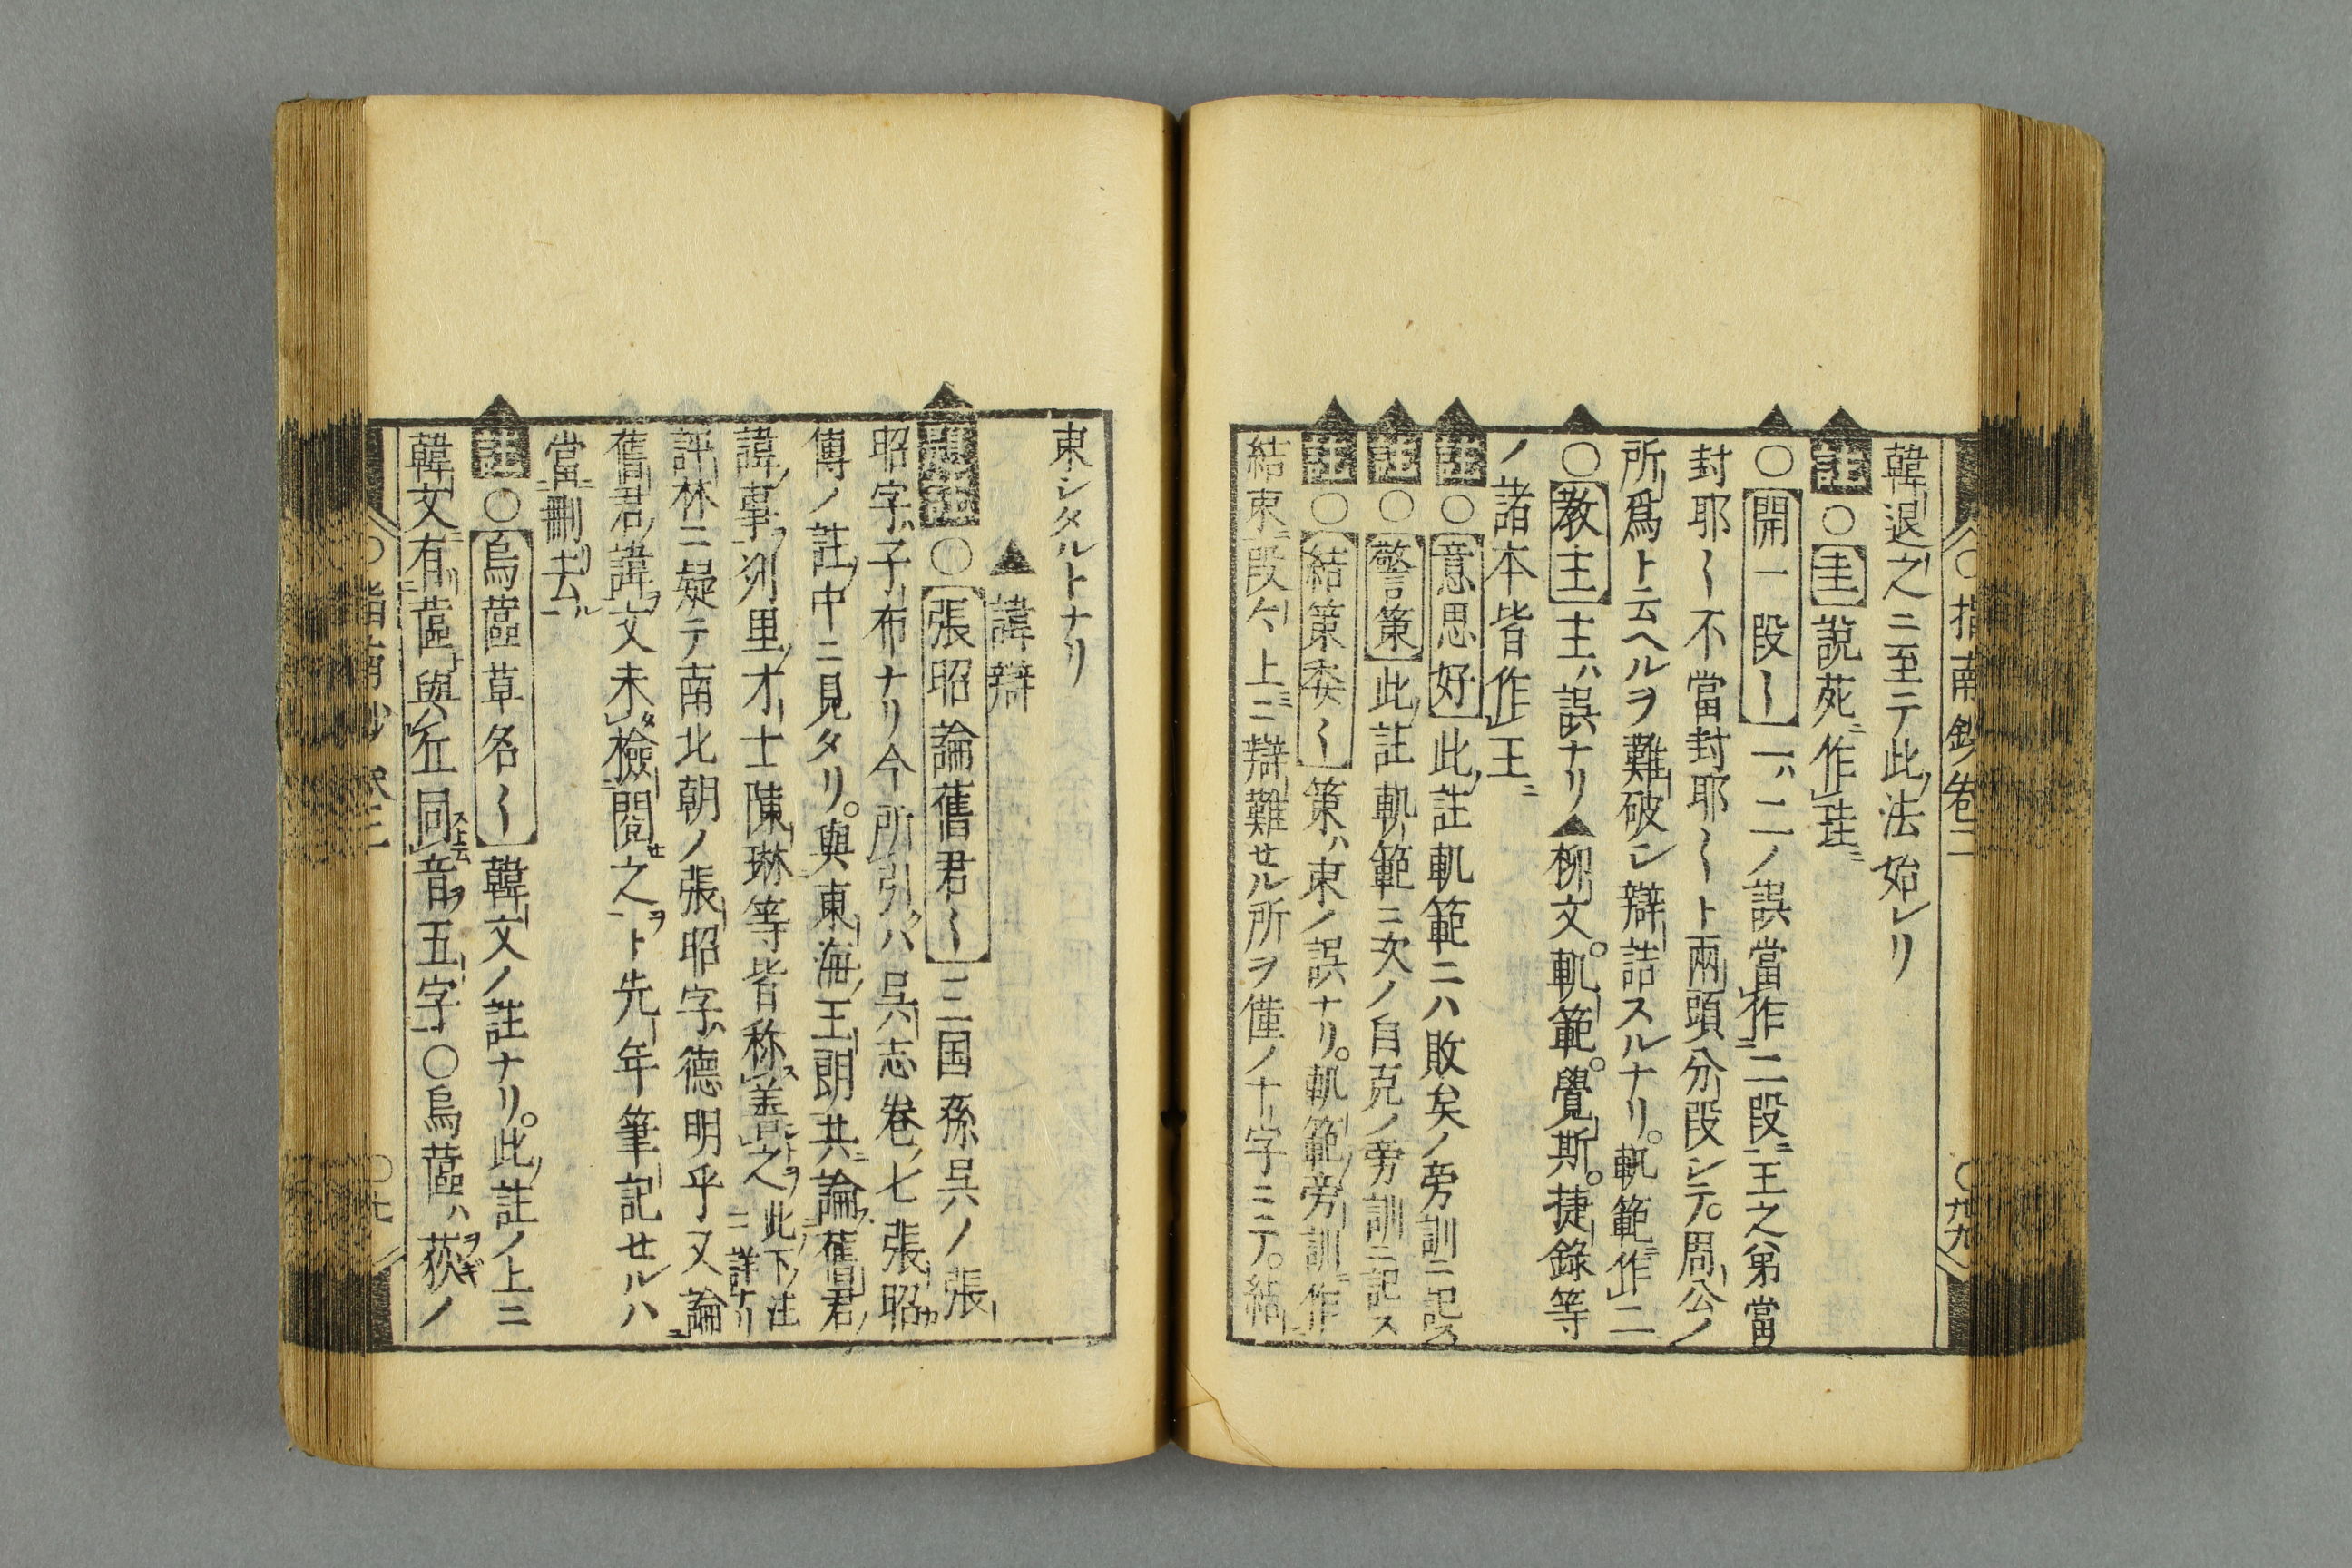 ○指南鈔卷二
○九九
韓退之ニ至テ此法始レリ
註○圭説苑作珪
○開一段〱一ハ二ノ誤當作二段王之弟當
封耶〱不當封耶〱ト兩頭分段シテ。周公ノ
所爲ト云ヘルヲ難破シ辯詰スルナリ。軌範作二
○教主主ハ誤ナリ▲柳文。軌範。覺斯。捷錄等
ノ諸本皆作王
註○意思好此註軌範ニハ敗矣ノ旁訓ニ記ス
註○警策此註軌範ニ次ノ自克ノ旁訓ニ記ス
註○結策委〱策ハ束ノ誤ナリ。軌範旁訓作
結束一段上ニ辯難セル所ヲ僅ノ十字ニテ。結
束シタルトナリ
▲諱辯
題註○張昭論舊君〱三国孫呉ノ張
昭字子布ナリ今所引ハ呉志卷七張昭
傳ノ註中ニ見タリ。與東海王朗共論舊君
諱事州里才士陳琳等皆称善之此下ノ注ニ詳ナリ
評林ニ疑テ南北朝ノ張昭字德明乎又論
舊君諱文未檢閲之ト先年筆記セルハ
當刪去
註○烏蓲草名〱韓文ノ註ナリ。此註ノ上ニ
韓文有蓲與丘同音五字○烏蓲ハ荻ノ